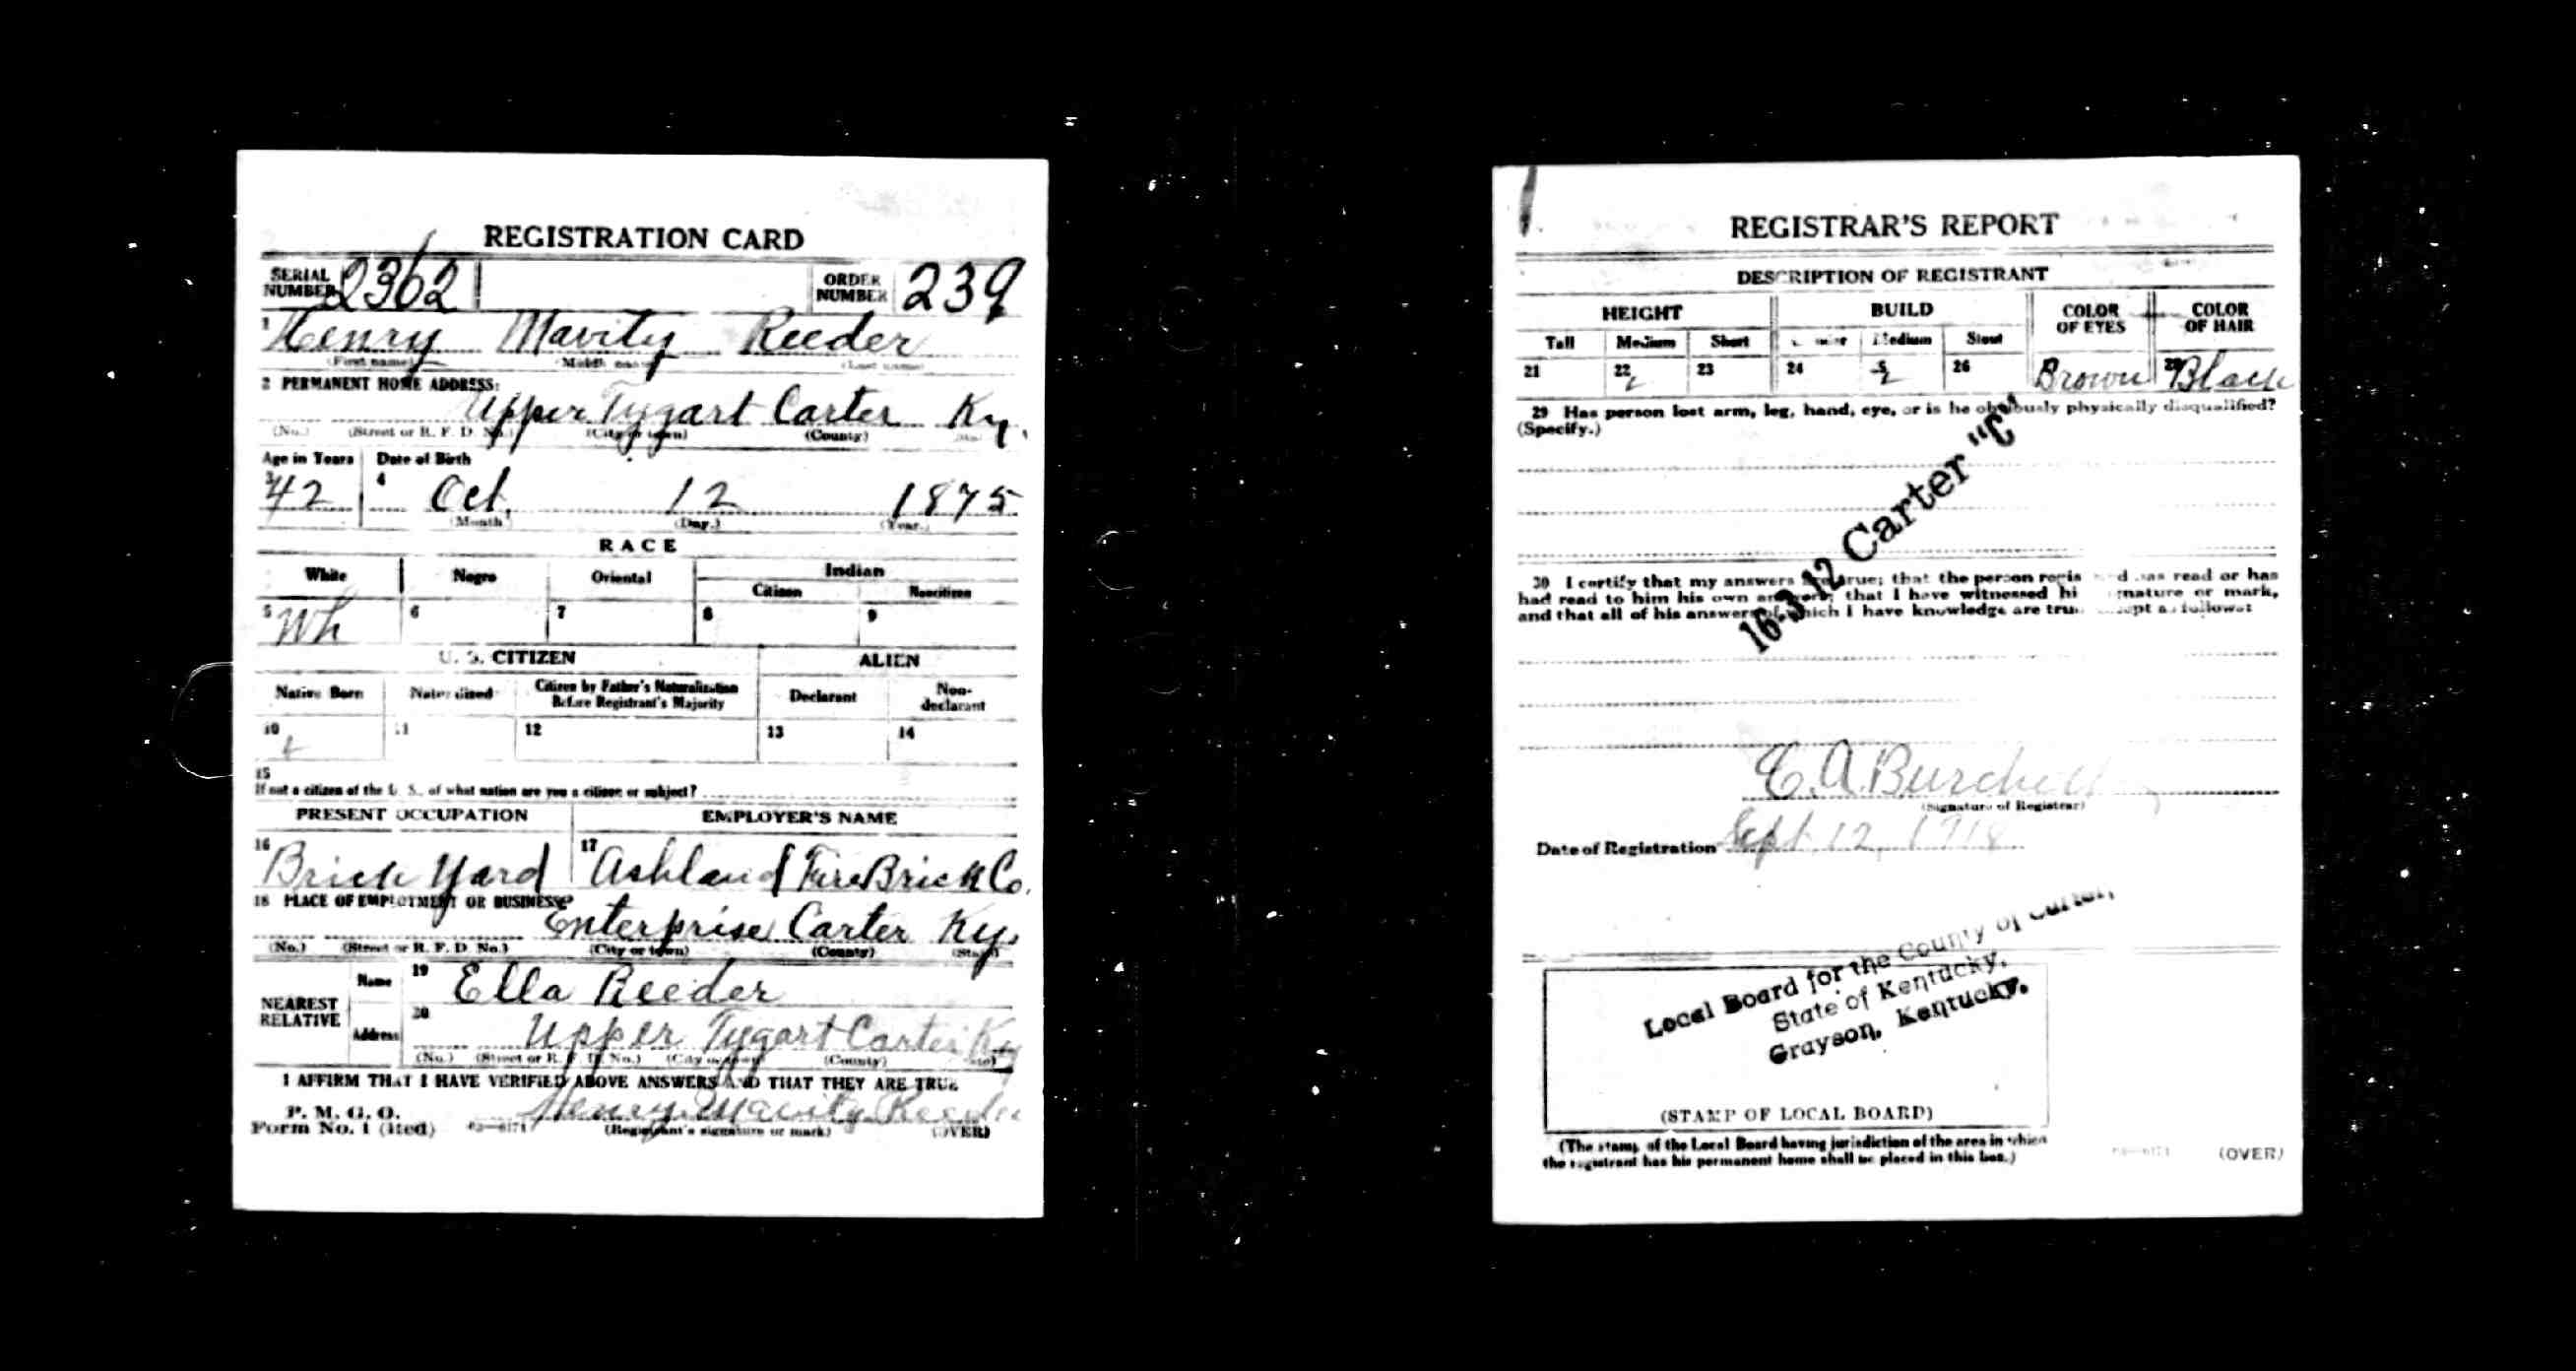 REGISTRATION CARD
SERIAL NUMBER 2362 ORDER NUMBER 239
1 Henry Mavity Reeder
(First name) (Middle name) (Last name)
2 PERMANENT HOME ADDRESS:
Upper Tygart Carter Ky.
(No.) (Street or R. F. D. No.) (City or town) (County)
Age in Years Date of Birth
3 42 4 Oct. 12 1875
(Month) (Day.) (Year.)
RACE
White Negro Oriental Indian
Citizen Noncitizen
5 Wh 6 7 8 9
U. S. CITIZEN ALIEN
Native Born Naturalized Citizen by Father's Naturalization Before Registrant's Majority Declarant Non-declarant
10 11 12 13 14
15
If not a citizen of the U. S., of what nation are you a citizen or subject?
PRESENT OCCUPATION EMPLOYER'S NAME
16 Brick Yard 17 Ashland Fire Brick Co.
18 PLACE OF EMPLOYMENT OR BUSINESS:
Enterprise Carter Ky.
(No.) (Street or R. F. D. No.) (City or town) (County) (State)
NEAREST RELATIVE
Name 19 Ella Reeder
Address 20 Upper Tygart Carter Ky
(No.) (Street or R. F. D. No.) (City or town) (County) (State)
I AFFIRM THAT I HAVE VERIFIED ABOVE ANSWERS AND THAT THEY ARE TRUE
P. M. G. O.
Form No. 1 (Red) Henry Mavity Reeder
(Registrant's signature or mark) (OVER)
REGISTRAR'S REPORT
DESCRIPTION OF REGISTRANT
HEIGHT BUILD COLOR OF EYES COLOR OF HAIR
Tall Medium Short Medium Stout
21 22 23 24 26 Brown Black
29 Has person lost arm, leg, hand, eye, or is he obviously physically disqualified?
(Specify.)
16-3-12 Carter "C"
30 I certify that my answers are true; that the person registered has read or has
had read to him his own answers; that I have witnessed his signature or mark,
and that all of his answers of which I have knowledge are true, except as follows:
E. A. Burchett
(Signature of Registrar)
Date of Registration Sept. 12, 1918
Local Board for the County of Carter,
State of Kentucky,
Grayson, Kentucky.
(STAMP OF LOCAL BOARD)
(The stamp of the Local Board having jurisdiction of the area in which
the registrant has his permanent home shall be placed in this box.)
(OVER)